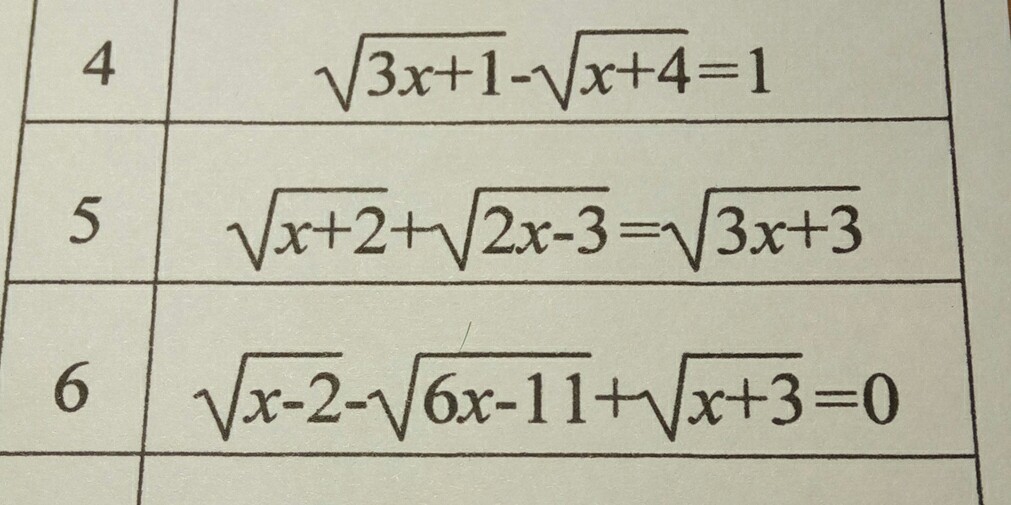 4 √3x+1-√x+4=1
5 √x+2+√2x-3=√3x+3
6 √x-2-√6x-11+√x+3=0